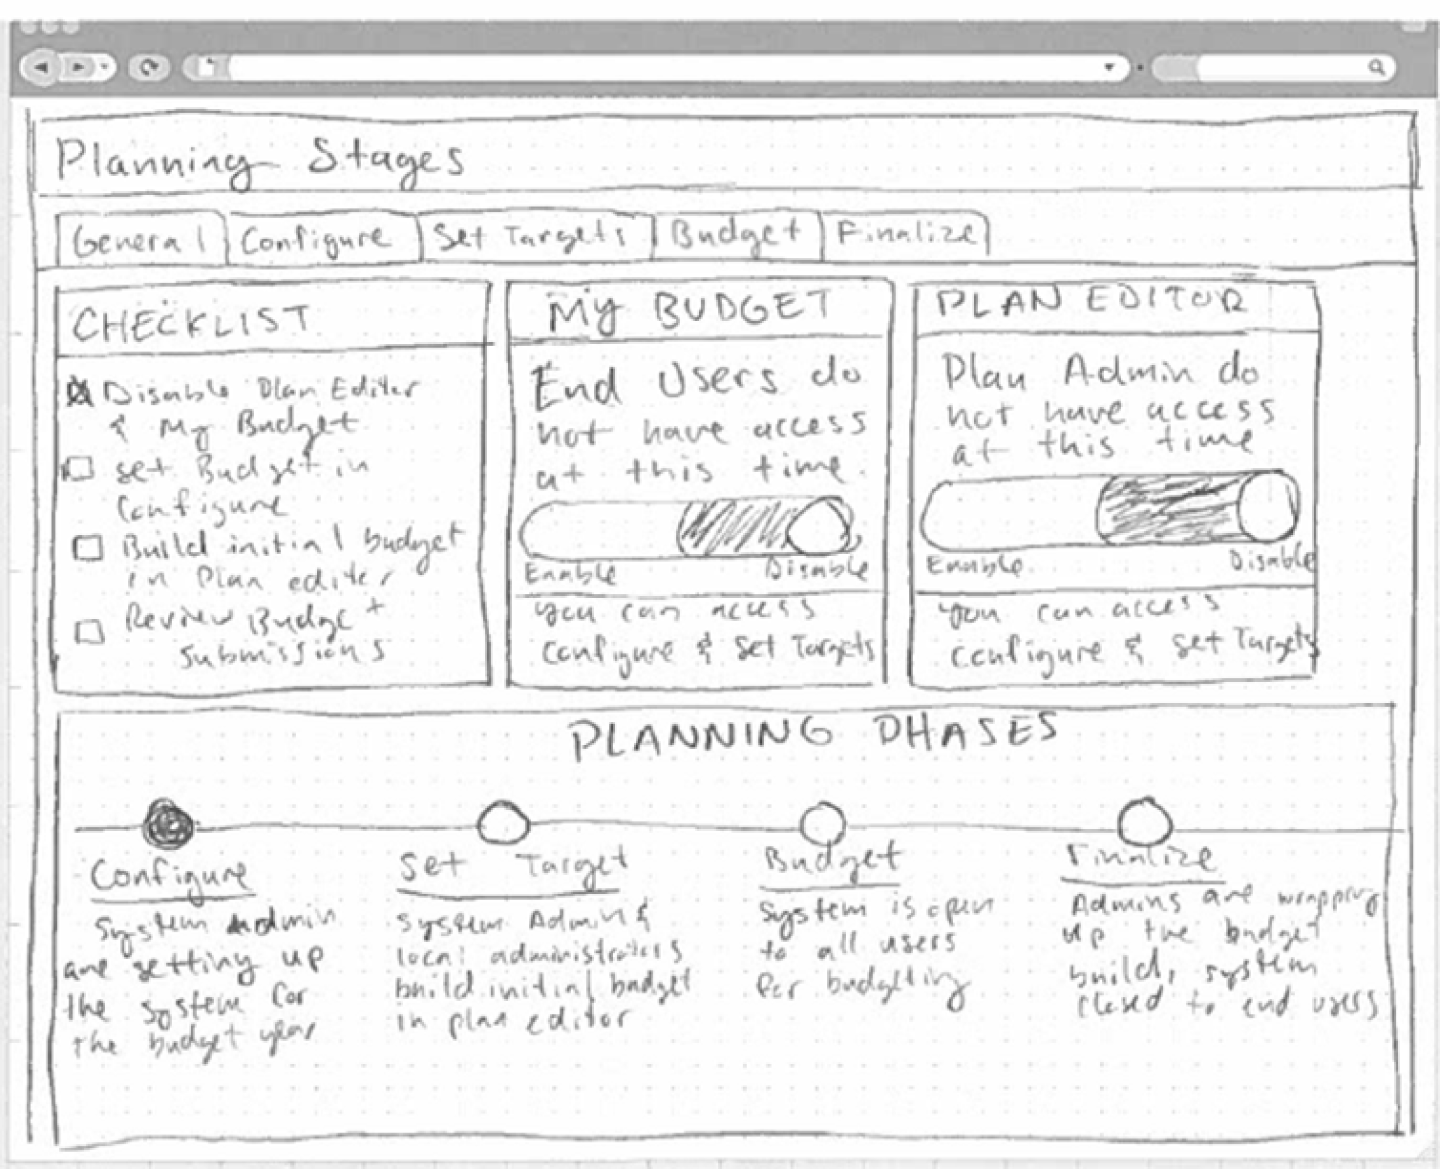 Planning Stages
General
Configure
Set Targets
Budget
Finalize
CHECKLIST
Disable Plan Editor
& My Budget
set Budget in
Configure
Build initial budget
in Plan editer
Review Budget
Submissions
My BUDGET
End Users do
not have access
at this time.
Enable
Disable
you can access
configure & set Targets
PLAN EDITOR
Plan Admin do
not have access
at this time
Enable
Disable
you can access
configure & set Targets
PLANNING PHASES
Configure
System Admin
are setting up
the system for
the budget year
Set Target
System Admin &
local administraters
build initial budget
in plan editor
Budget
System is open
to all users
for budgeting
Finalize
Admins are wrapping
up the budget
build, system
closed to end users